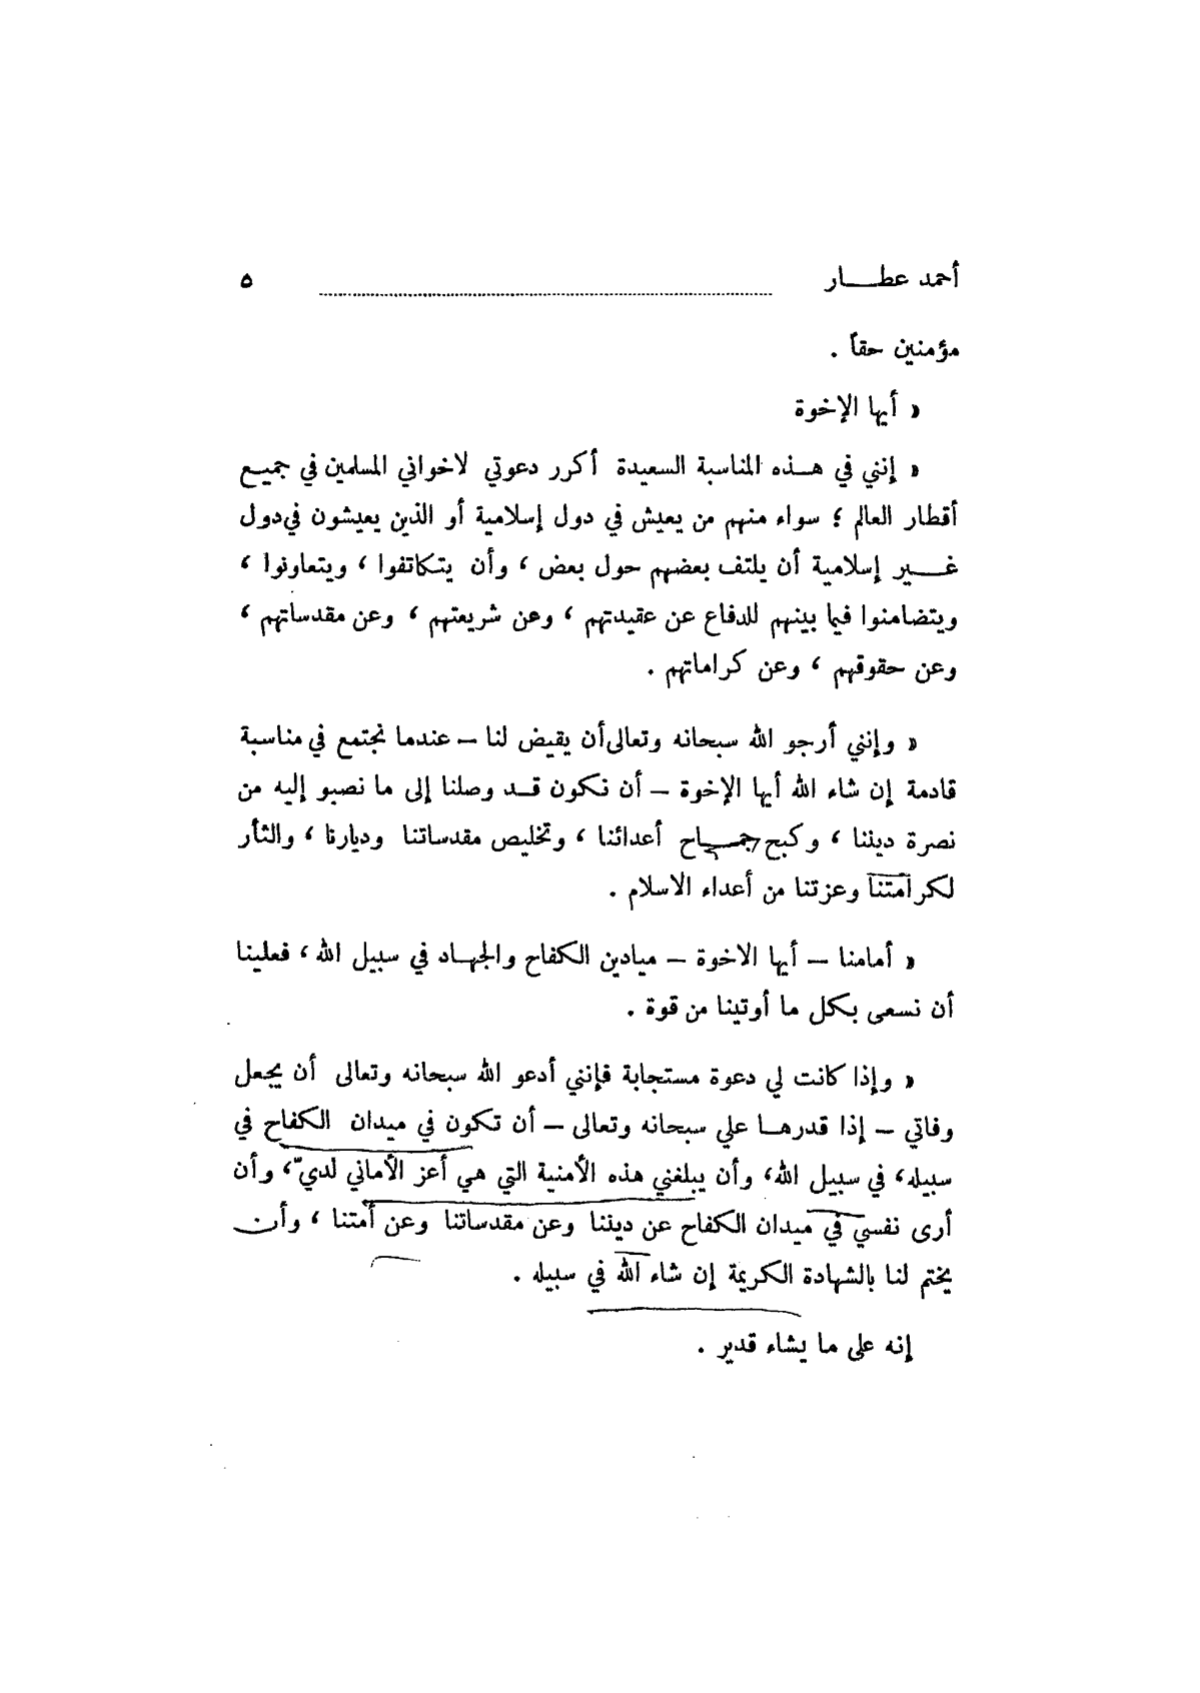 أحمد عطـــار ٥
مؤمنين حقاً .
« أيها الإخوة
« إنني في هـذه المناسبة السعيدة أكرر دعوتي لاخواني المسلمين في جميـع
أقطار العالم ؛ سواء منهم من يعيش في دول إسلامية أو الذين يعيشون في دول
غـــير إسلامية أن يلتف بعضهم حول بعض ، وأن يتكاتفوا ، ويتعاونوا ،
ويتضامنوا فيما بينهم للدفاع عن عقيدتهم ، وعن شريعتهم ، وعن مقدساتهم ،
وعن حقوقهم ، وعن كراماتهم .
« وإنني أرجو الله سبحانه وتعالى أن يقيض لنا – عندما نجتمع في مناسبة
قادمة إن شاء الله أيها الإخوة – أن نكون قـد وصلنا إلى ما نصبو إليه من
نصرة ديننا ، وكبح جمـاح أعدائنا ، وتخليص مقدساتنا وديارنا ، والثأر
لكرامتنا وعزتنا من أعداء الاسلام .
« أمامنا – أيها الاخوة – ميادين الكفاح والجهـاد في سبيل الله ، فعلينا
أن نسعى بكل ما أوتينا من قوة .
« وإذا كانت لي دعوة مستجابة فإنني أدعو الله سبحانه وتعالى أن يجعل
وفاتي – إذا قدرهـا علي سبحانه وتعالى – أن تكون في ميدان الكفاح في
سبيله، في سبيل الله، وأن يبلغني هذه الأمنية التي هي أعز الأماني لديّ، وأن
أرى نفسي في ميدان الكفاح عن ديننا وعن مقدساتنا وعن أمتنا ، وأن
يختم لنا بالشهادة الكريمة إن شاء الله في سبيله .
إنه على ما يشاء قدير .